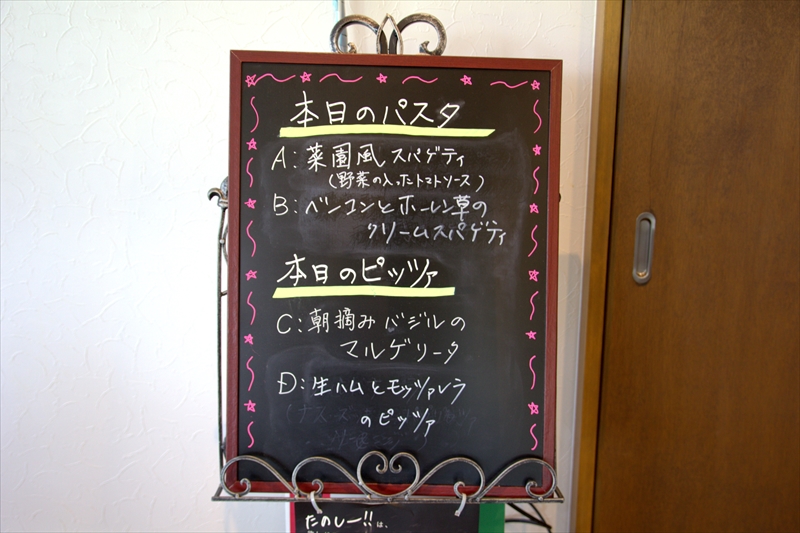 本日のパスタ
A:菜園風スパゲティ
(野菜の入ったトマトソース)
B:ベーコンとホーレン草の
クリームスパゲティ
本日のピッツァ
C:朝摘みバジルの
マルゲリータ
D:生ハムとモッツァレラ
のピッツァ
たのしー!!は、